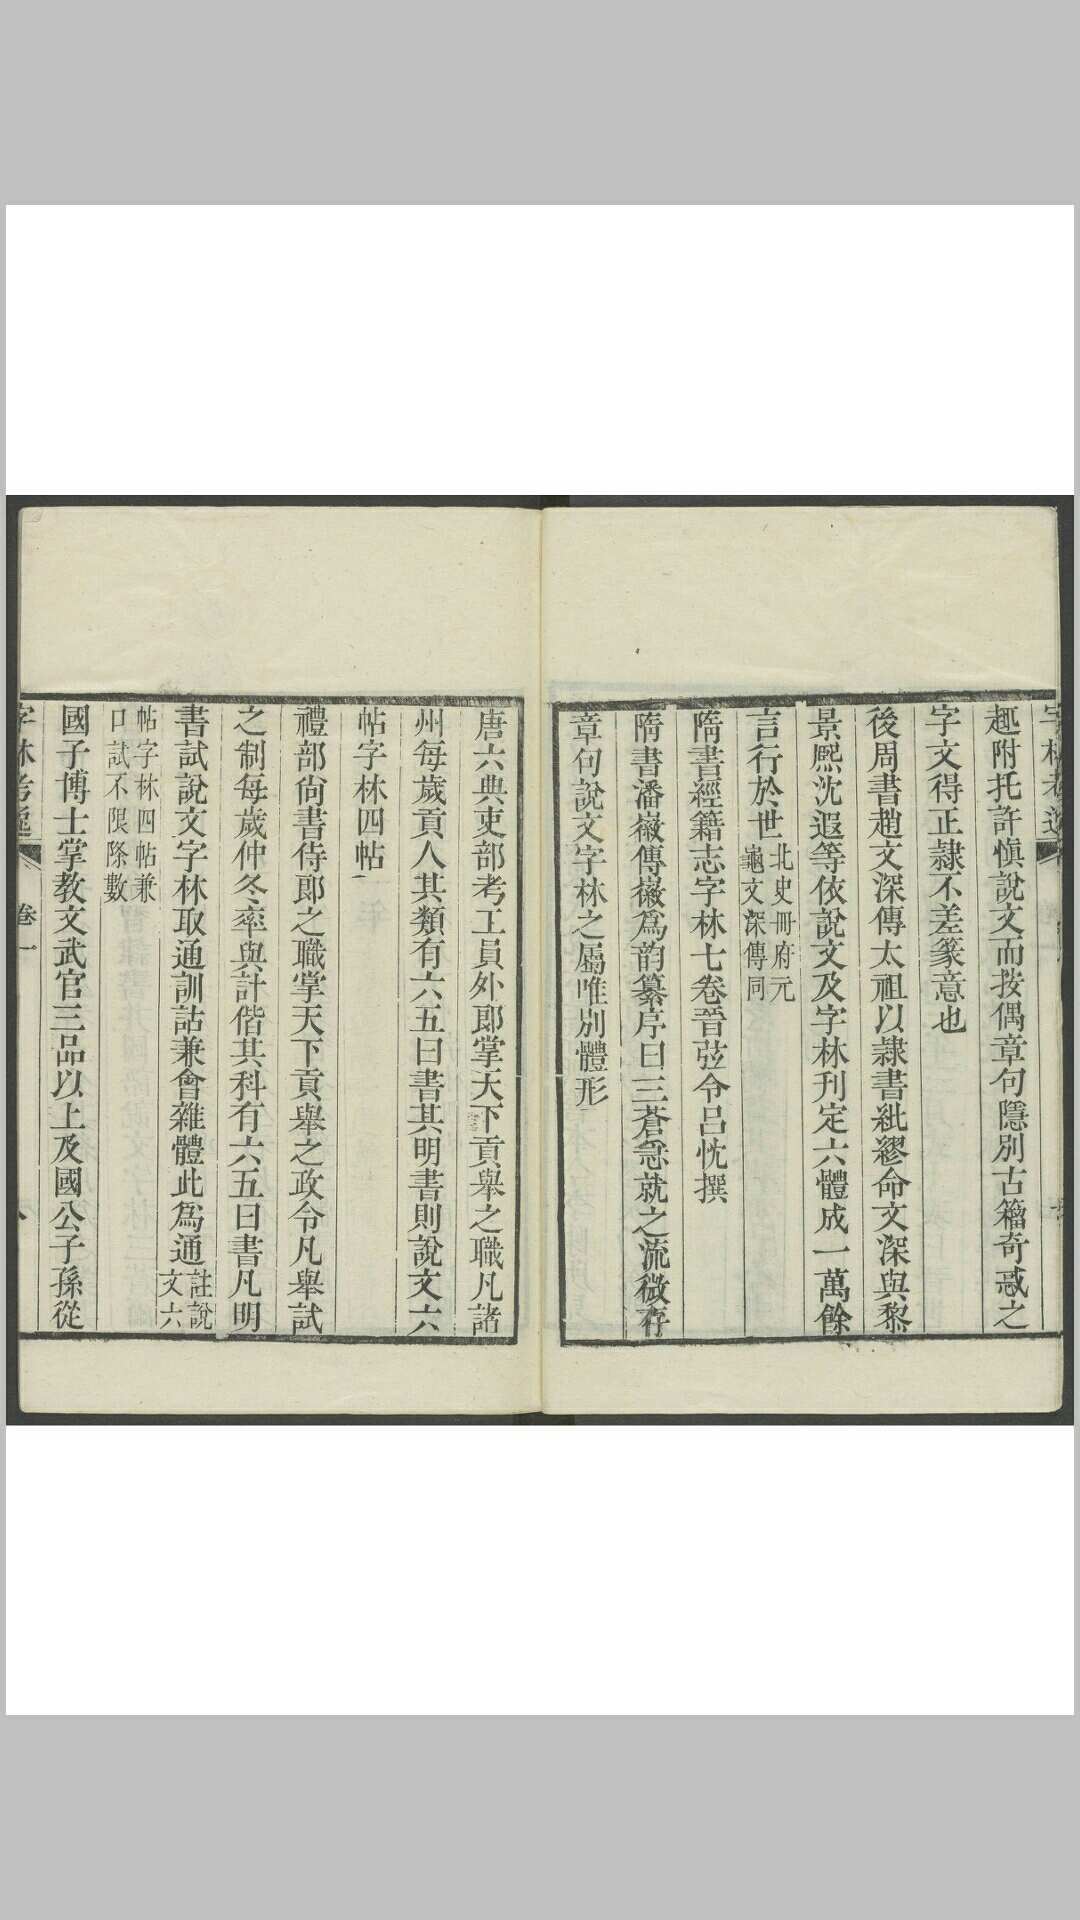 趣附托許慎說文而按偶章句隱別古籀奇惑之
字文得正隸不差篆意也
後周書趙文深傳太祖以隸書紕繆命文深與黎
景熙沈遐等依說文及字林刊定六體成一萬餘
言行於世北史冊府元
龜文深傳同
隋書經籍志字林七卷晉弦令呂忱撰
隋書潘徽傳徽爲韵纂序曰三蒼急就之流微存
章句說文字林之屬唯別體形
唐六典吏部考工員外郎掌天下貢舉之職凡諸
州每歲貢人其類有六五曰書其明書則說文六
帖字林四帖
禮部尚書侍郎之職掌天下貢舉之政令凡舉試
之制每歲仲冬率與計偕其科有六五曰書凡明
書試說文字林取通訓詁兼會雜體此爲通註說
文六
帖字林四帖兼
口試不限條數
國子博士掌教文武官三品以上及國公子孫從
字林考逸
卷一